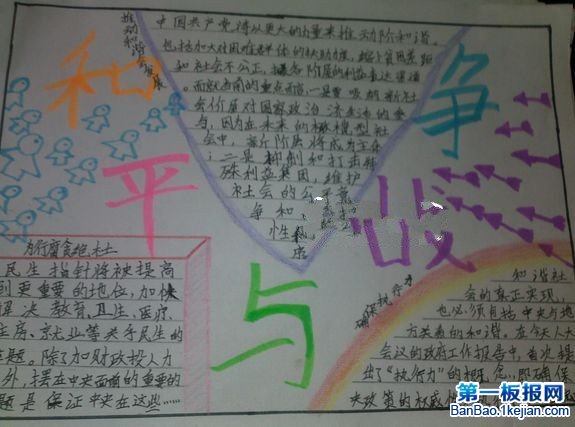 推动和谐社会发展
中国共产党,将以更大的力量来推动阶和谐。
也括加大对困难群体的扶助力度,缩小贫困差距
和社会不公正,
各阶层的利益表达渠道
。而
会价层对国家政治
与,因为在未来的橄榄型社
会中,
阶层将成为主体
;二是抑制和打击特
殊利益集团,维护
社会的公平竞
争和
和
平
与
战
争
为行
民生指针将被提高
到更重要的地位,加快
解决教育、卫生、医疗、
住房、就业等关乎民生的
主题。除了加财政投入力
外,摆在中央面前的重要的
题是保证中央在这些……
确保执行力
和谐社
会的真正实现,
也必须包括中央与地
方关系的和谐。在今天人大
会议的政府工作报告中,首次提
出了“执行力”的概念,即确保
央政策的权威
第一板报网
BanBao.1kejian.com